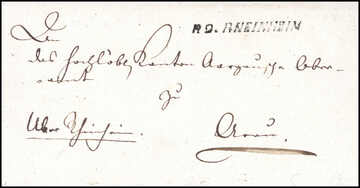 RO. RHEINHEIM
An
das hochlöbl. Kanton Aargauische Ober-
amt
zu
Über Rheinheim. Arau.